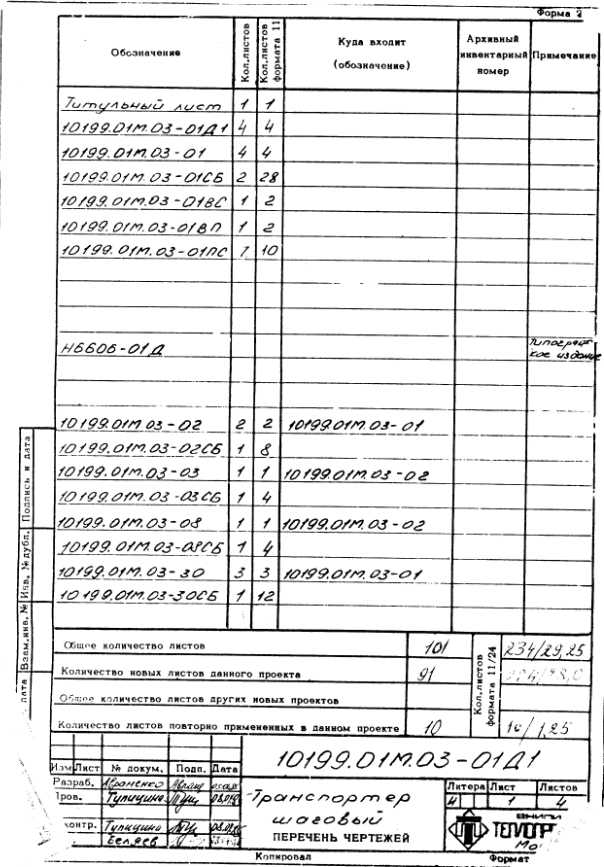 Форма 2
Обозначение Кол.листов Кол.листов формата 11 Куда входит (обозначение) Архивный инвентарный номер Примечание
Титульный лист 1 1
10199.01М.03-01Д1 4 4
10199.01М.03-01 4 4
10199.01М.03-01СБ 2 28
10199.01М.03-01ВС 1 2
10199.01М.03-01ВП 1 2
10199.01М.03-01ПС 7 10
Н6606-01Д
кое издание
10199.01М.03-02 2 2 10199.01М.03-01
10199.01М.03-02СБ 1 8
10199.01М.03-03 1 1 10199.01М.03-02
10199.01М.03-03СБ 1 4
10199.01М.03-08 1 1 10199.01М.03-02
10199.01М.03-08СБ 1 4
10199.01М.03-30 3 3 10199.01М.03-01
10199.01М.03-30СБ 1 12
Подпись и дата
Инв. № дубл.
Взам.инв.№
дата
Общее количество листов 101
Количество новых листов данного проекта 91
Общее количество листов других новых проектов
Количество листов повторно примененных в данном проекте 10
Кол.листов формата 11/24
234/29,25
10/1,25
10199.01М.03-01Д1
Изм Лист № докум. Подп. Дата
Разраб.
Пров. Тупицина
контр. Тупицина
Беляев
Транспортер
шаговый
ПЕРЕЧЕНЬ ЧЕРТЕЖЕЙ
Литера Лист Листов
И 1 4
ВНИПИ
ТЕПЛОПР
Мо
Копировал Формат